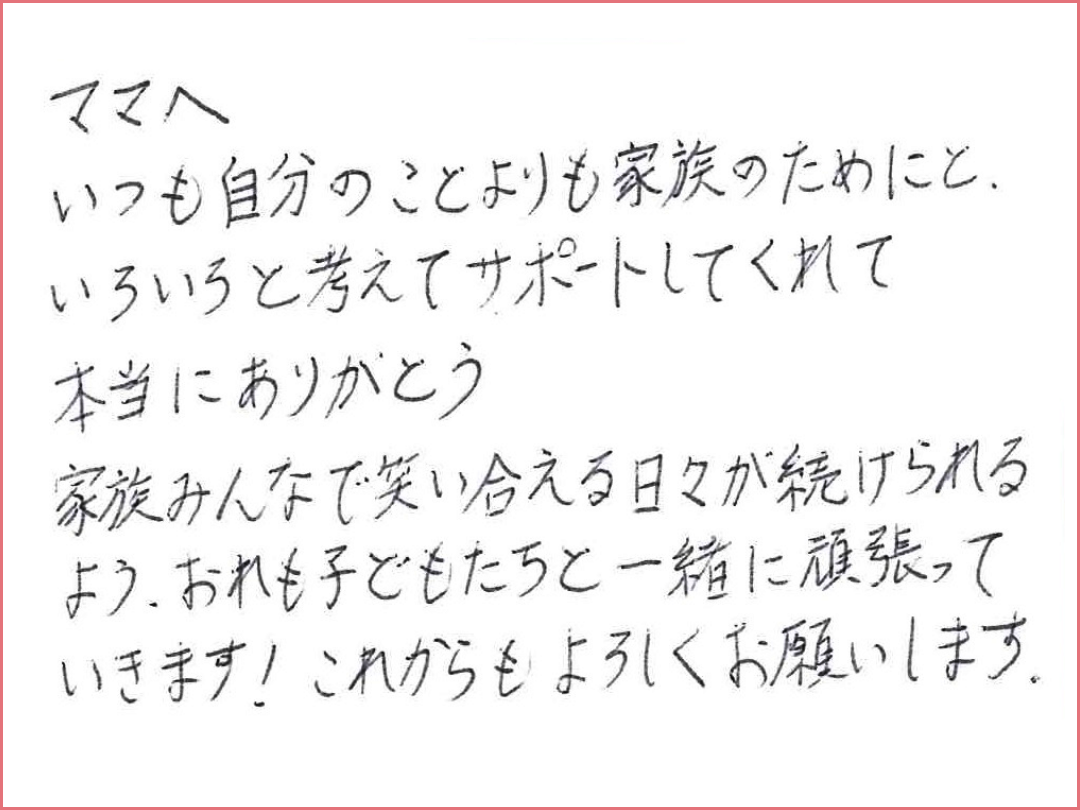 ママへ
いつも自分のことよりも家族のためにと、
いろいろと考えてサポートしてくれて
本当にありがとう
家族みんなで笑い合える日々が続けられる
よう、おれも子どもたちと一緒に頑張って
いきます！これからもよろしくお願いします。